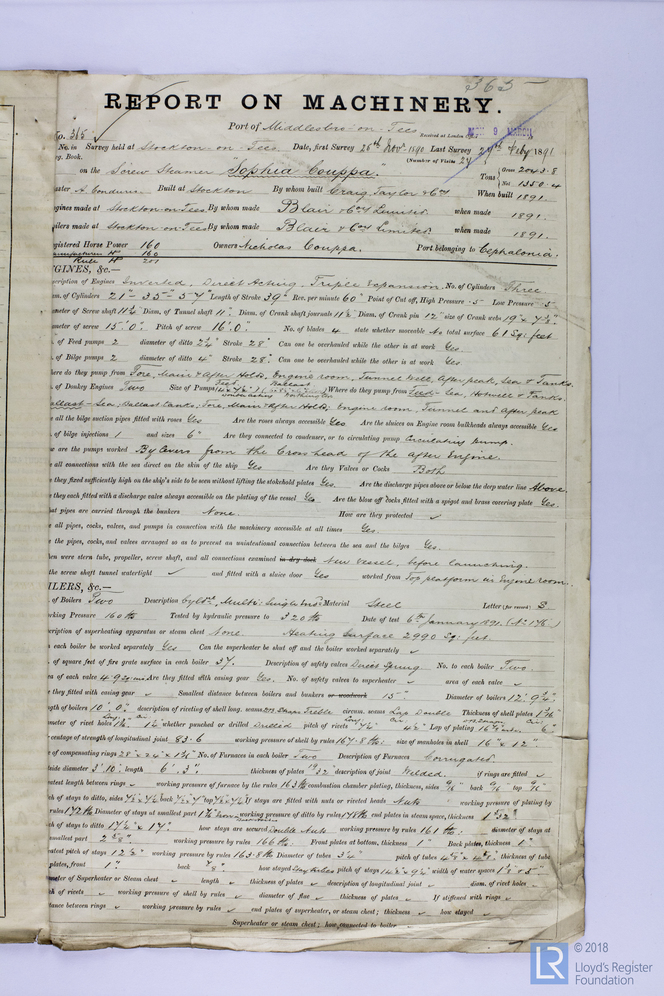 365
REPORT ON MACHINERY.
Port of Middlesbro-on-Tees
Received at London
MON 9 MARCH
No. 365
No. in Survey held at Stockton on Tees Date, first Survey 26th Novr 1890 Last Survey 27th Feby 1891
Book. (Number of Visits 24)
on the Screw Steamer "Sophia Couppa. Tons Gross 2043.8
Net 1350.4
A. Condure Built at Stockton By whom built Craig Taylor & Co When built 1891.
Engines made at Stockton on Tees By whom made Blair & Coy Limited when made 1891.
Boilers made at Stockton on Tees By whom made Blair & Coy Limited when made 1891.
Registered Horse Power 160 Owners Nicholas Couppa. Port belonging to Cephalonia.
160
Rule 201
ENGINES, &c.—
Description of Engines Inverted, Direct Acting, Triple Expansion. No. of Cylinders Three
of Cylinders 21"-35"-57" Length of Stroke 39" Rev. per minute 60 Point of Cut off, High Pressure .5 Low Pressure .5
Diameter of Screw shaft 11½ Diam. of Tunnel shaft 11" Diam. of Crank shaft journals 11½ Diam. of Crank pin 12" size of Crank webs 19" x 7½"
Diameter of screw 15'.0" Pitch of screw 16'.0" No. of blades 4 state whether moveable No total surface 61 Sq: feet
of Feed pumps 2 diameter of ditto Stroke 28" Can one be overhauled while the other is at work Yes.
of Bilge pumps 2 diameter of ditto 4" Stroke 28" Can one be overhauled while the other is at work Yes.
Where do they pump from Fore, Main & After Holds, Engine room, Tunnel Well, After peak, Sea & Tanks.
of Donkey Engines Two Size of Pumps Where do they pump from Feed- Sea, Hotwell & Tanks.
Ballast- Sea, Ballast tanks, Fore, Main & After Holds, Engine room, Tunnel and after peak
all the bilge suction pipes fitted with roses Yes Are the roses always accessible Yes. Are the sluices on Engine room bulkheads always accessible Yes
of bilge injections 1 and sizes 6" Are they connected to condenser, or to circulating pump Circulating pump.
How are the pumps worked By levers from the Crosshead of the after Engine.
all connections with the sea direct on the skin of the ship Yes Are they Valves or Cocks Both
they fixed sufficiently high on the ship's side to be seen without lifting the stokehold plates Yes. Are the discharge pipes above or below the deep water line Above.
they each fitted with a discharge valve always accessible on the plating of the vessel Yes. Are the blow off cocks fitted with a spigot and brass covering plate Yes.
What pipes are carried through the bunkers None. How are they protected ✓
all pipes, cocks, valves, and pumps in connection with the machinery accessible at all times Yes.
the pipes, cocks, and valves arranged so as to prevent an unintentional connection between the sea and the bilges Yes.
When were stern tube, propeller, screw shaft, and all connections examined in dry dock New vessel, before launching.
the screw shaft tunnel watertight ✓ and fitted with a sluice door Yes worked from Top platform in Engine room.
BOILERS, &c.—
of Boilers Two Description Cyldl., Multr: Single End: Material Steel Letter (for record) S
Working Pressure 160 lb Tested by hydraulic pressure to 320 lb Date of test 6th January 1891. (No 1716.)
Description of superheating apparatus or steam chest None. Heating Surface 2990 Sq: feet.
each boiler be worked separately Yes Can the superheater be shut off and the boiler worked separately ✓
of square feet of fire grate surface in each boiler 37. Description of safety valves Direct Spring No. to each boiler Two.
of each valve 4.9 sq. ins Are they fitted with easing gear Yes. No. of safety valves to superheater ✓ area of each valve ✓
they fitted with easing gear ✓ Smallest distance between boilers and bunkers or woodwork 15" Diameter of boilers 12'.9¼"
Length of boilers 10'.0" description of riveting of shell long. seams Treble circum. seams Lap Double Thickness of shell plates 1 3/16"
Diameter of rivet holes whether punched or drilled Drilled pitch of rivets Lap of plating
Percentage of strength of longitudinal joint 83.6 working pressure of shell by rules 167.8 lb: size of manholes in shell 16" x 12"
of compensating rings No. of Furnaces in each boiler Two Description of Furnaces Corrugated.
Outside diameter 3'.10" length 6'.3". thickness of plates 19/32" description of joint Welded. if rings are fitted ✓
Greatest length between rings ✓ working pressure of furnace by the rules 163 lb combustion chamber plating, thickness, sides 9/16" back 9/16" top 9/16"
of stays to ditto, sides back top If stays are fitted with nuts or riveted heads Nuts working pressure of plating by
rules 172 lb Diameter of stays at smallest part working pressure of ditto by rules end plates in steam space, thickness 1 3/32"
of stays to ditto 17½" x 17". how stays are secured Double Nuts working pressure by rules 161 lb: diameter of stays at
smallest part 2 5/8". working pressure by rules 166 lb: Front plates at bottom, thickness 1" Back plates, thickness 1"
Greatest pitch of stays 12½" working pressure by rules 163.8 lb Diameter of tubes 3¼" pitch of tubes thickness of tube
plates, front 1" back how stayed pitch of stays width of water spaces
Diameter of Superheater or Steam chest ✓ length ✓ thickness of plates ✓ description of longitudinal joint ✓ diam. of rivet holes ✓
of rivets ✓ working pressure of shell by rules ✓ diameter of flue ✓ thickness of plates ✓ If stiffened with rings ✓
Distance between rings ✓ working pressure by rules ✓ end plates of superheater, or steam chest; thickness ✓ how stayed ✓
Superheater or steam chest; how connected to boiler
© 2018
LR
Lloyd's Register
Foundation